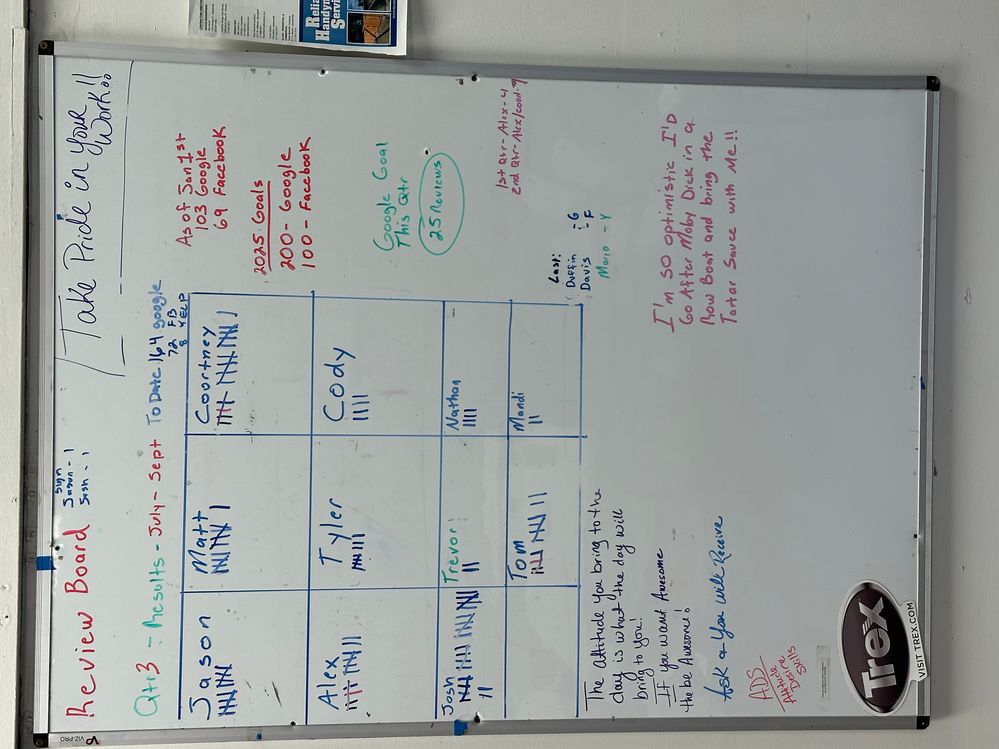 Review Board
Sign
Jason - 1
Josh - 1
Take Pride in Your
Work!!
Qtr 3 - Results - July - Sept To Date 164 google
72 FB
8 YELP
As of Jan 1st
103 Google
69 Facebook
2025 Goals
200 - Google
100 - Facebook
Google Goal
This Qtr
25 Reviews
1st Qtr - Alex - 4
Jason
Matt
Courtney
Alex
Tyler
Cody
Josh
Trevor
Nathan
Tom
Mandi
Last:
Duffin - G
Davis - F
Mario - Y
The Attitude you bring to the
day is what the day will
bring to you!
If you want Awesome
the be Awesome!
Ask & You will Receive
I'm so optimistic I'D
Go After Moby Dick in a
Row Boat and bring the
Tartar Sauce with Me!!
ADS
Attitude
Desire
Skills
Trex
VISIT TREX.COM
VIZ-PRO